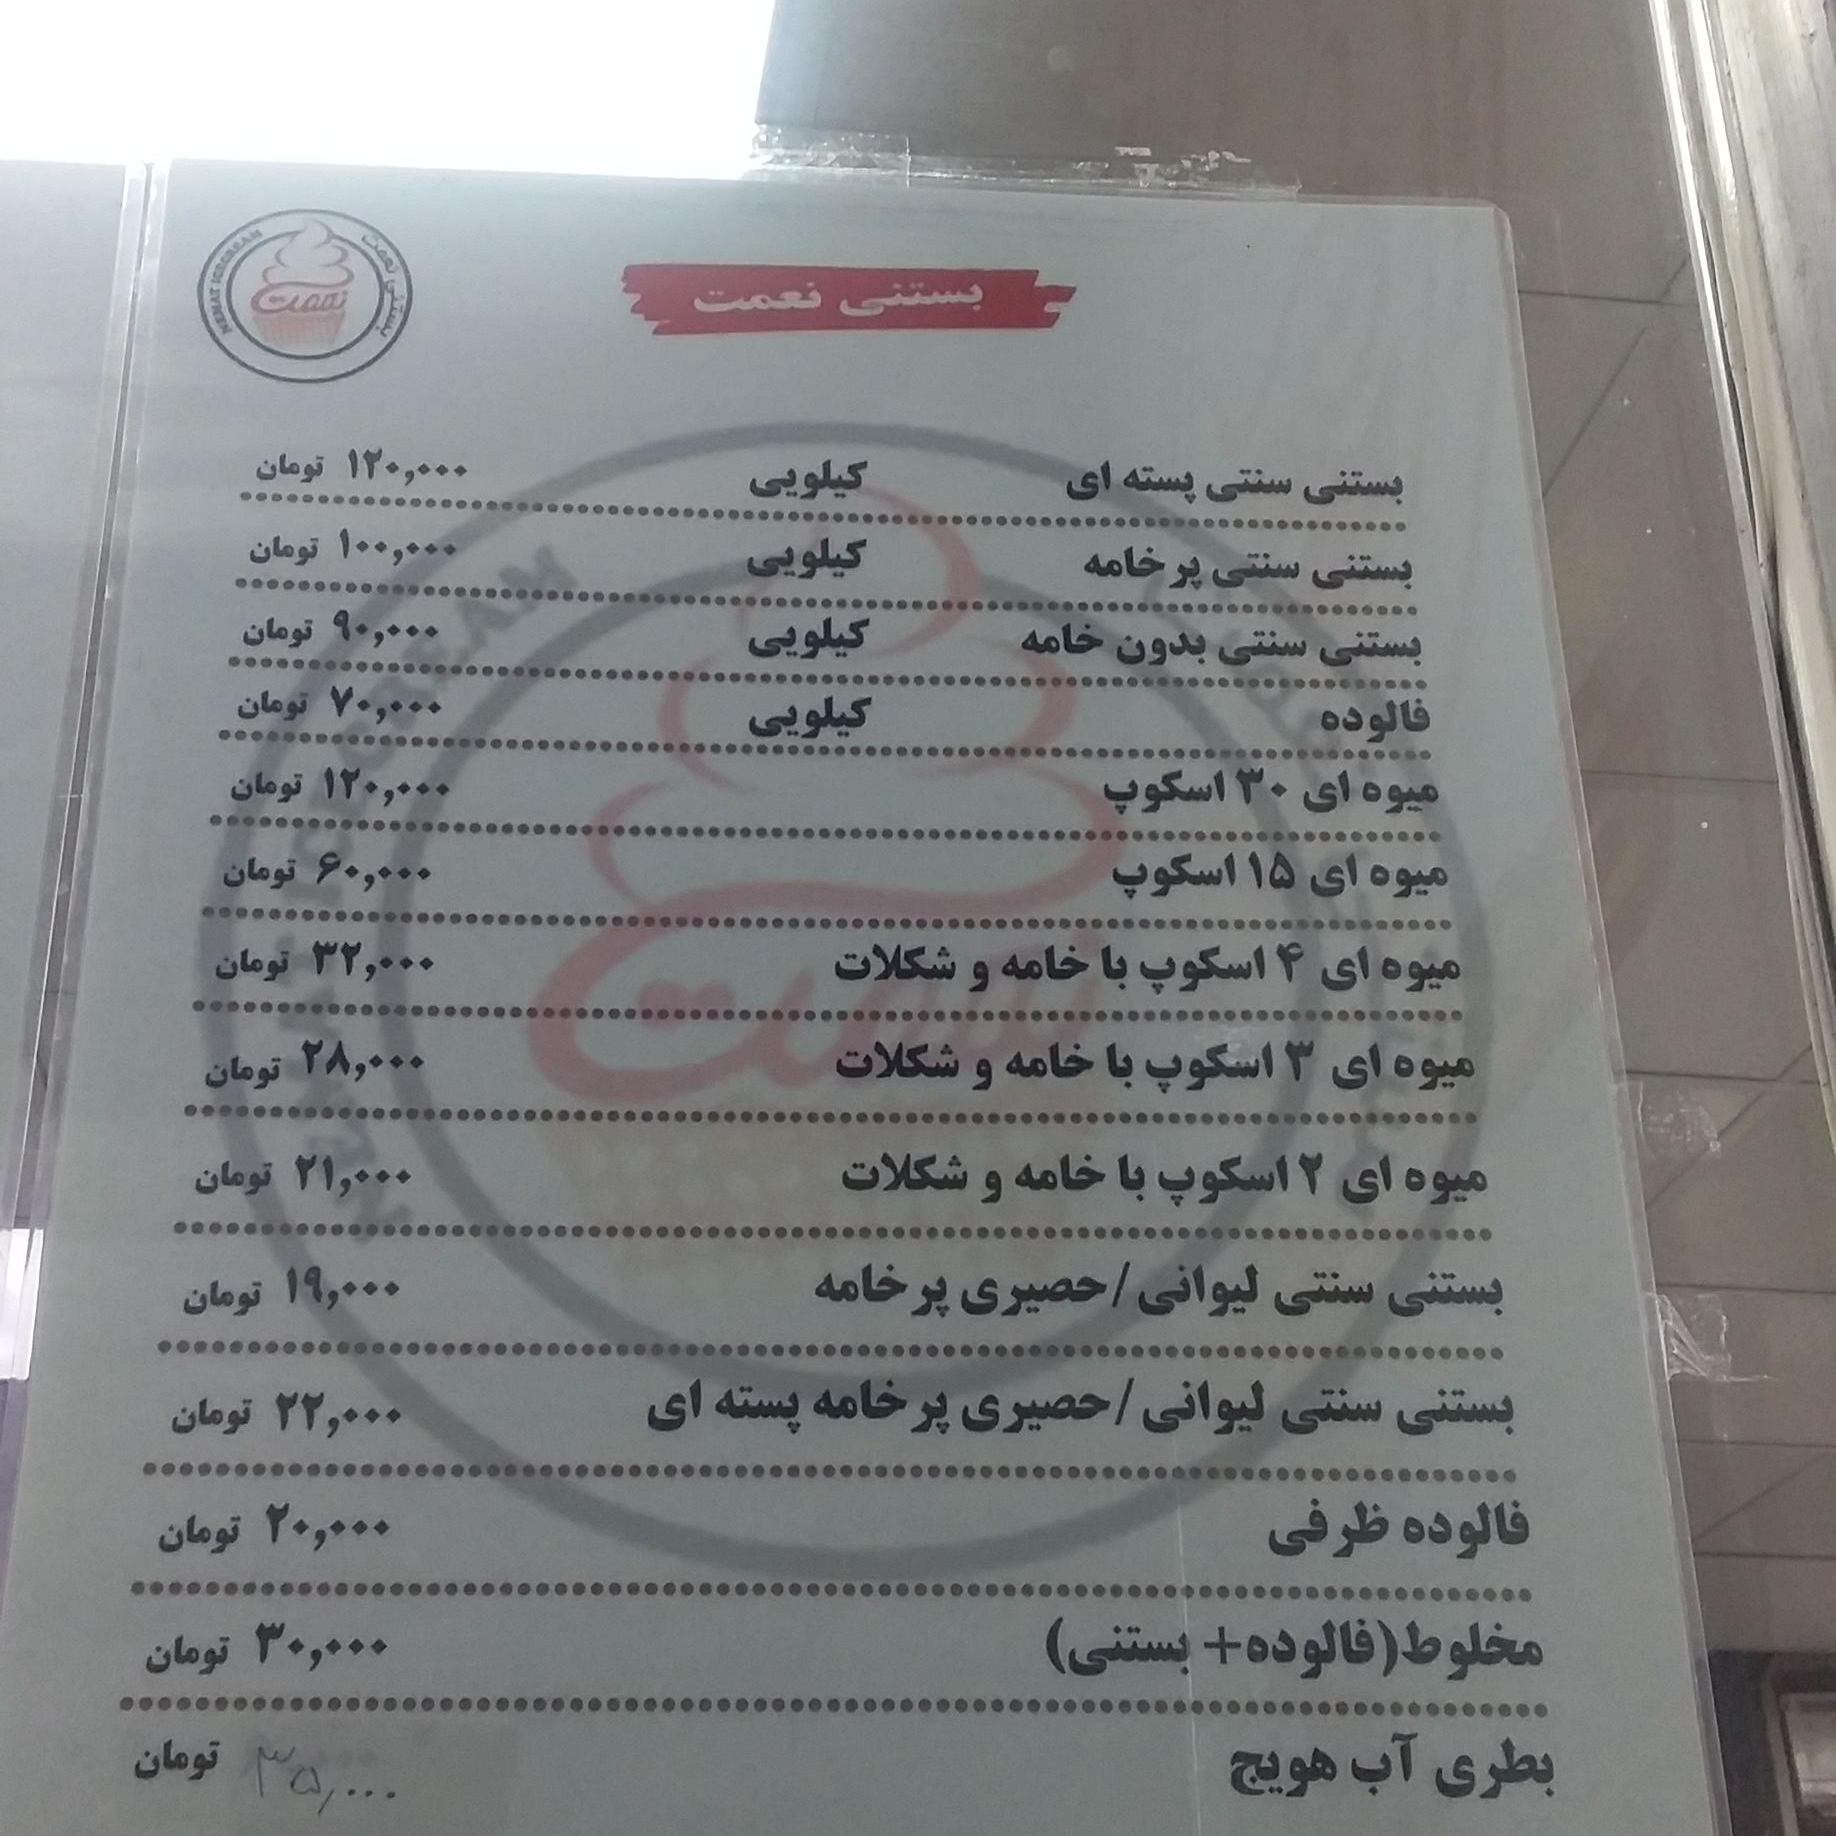 NEMAT ICECREAM
بستنی نعمت
نعمت
بستنی نعمت
بستنی سنتی پسته ای کیلویی ۱۲۰,۰۰۰ تومان
بستنی سنتی پر خامه کیلویی ۱۰۰,۰۰۰ تومان
بستنی سنتی بدون خامه کیلویی ۹۰,۰۰۰ تومان
فالوده کیلویی ۷۰,۰۰۰ تومان
میوه ای ۳۰ اسکوپ ۱۲۰,۰۰۰ تومان
میوه ای ۱۵ اسکوپ ۶۰,۰۰۰ تومان
میوه ای ۴ اسکوپ با خامه و شکلات ۳۲,۰۰۰ تومان
میوه ای ۳ اسکوپ با خامه و شکلات ۲۸,۰۰۰ تومان
میوه ای ۲ اسکوپ با خامه و شکلات ۲۱,۰۰۰ تومان
بستنی سنتی لیوانی /حصیری پر خامه ۱۹,۰۰۰ تومان
بستنی سنتی لیوانی /حصیری پر خامه پسته ای ۲۲,۰۰۰ تومان
فالوده ظرفی ۲۰,۰۰۰ تومان
مخلوط(فالوده+ بستنی) ۳۰,۰۰۰ تومان
بطری آب هویج ۳۵,۰۰۰ تومان